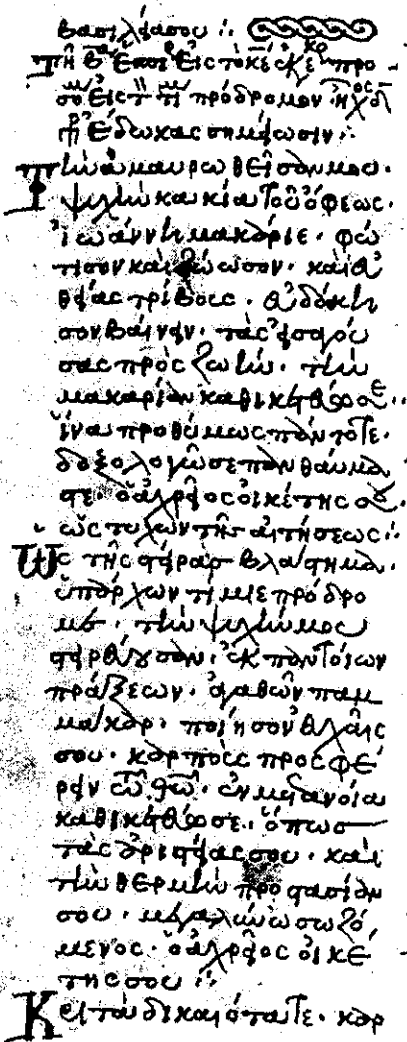 βασιλείασου :·
Τῇ β ἑσπε εἰς τὸ κε ἐκε προ-
πρ Ἔδωκας σημείωσιν :·
Τὴν ἀμαυρωθεῖσάν μου·
ψυχὴν κακία τοῦ ὄφεως·
Ἰωάννη μακάριε· φώ
τισον καὶ σῶσον· καὶ εὐ
θείας τρίβους· εὐδόκη
σον βαίνειν· τὰς εἰσαγού
σας πρὸς ζωὴν· τὴν
μακαρίαν καθικετεύω σε·
ἵνα προθύμως πάντοτε·
δοξολογῶ σε πανθαύμα
στε· ὁ ἀχρεῖος οἰκέτης σου·
ὡς τυχὼν τῆς αἰτήσεως :·
Ὡς τῆς στείρας βλάστημα·
ὑπάρχων τίμιε πρόδρο
με· τὴν ψυχήν μου
στειρεύουσαν· ἐκ παντοίων
πράξεων· ἀγαθῶν παμ
μάκαρ· ποίησον εὐχαῖς
σου· καρποὺς προσφέ
ρειν τῶ θῶ· ἐν μετανοία
καθικετεύω σε· ὅπως
τὰς ἀριστείας σου· καὶ
τὴν θερμὴν προστασίαν
σου· μεγαλύνω σωζό
μενος· ὁ ἀχρεῖος οἰκέ
της σου :·
Κριτὰ δικαιότατε· καρ